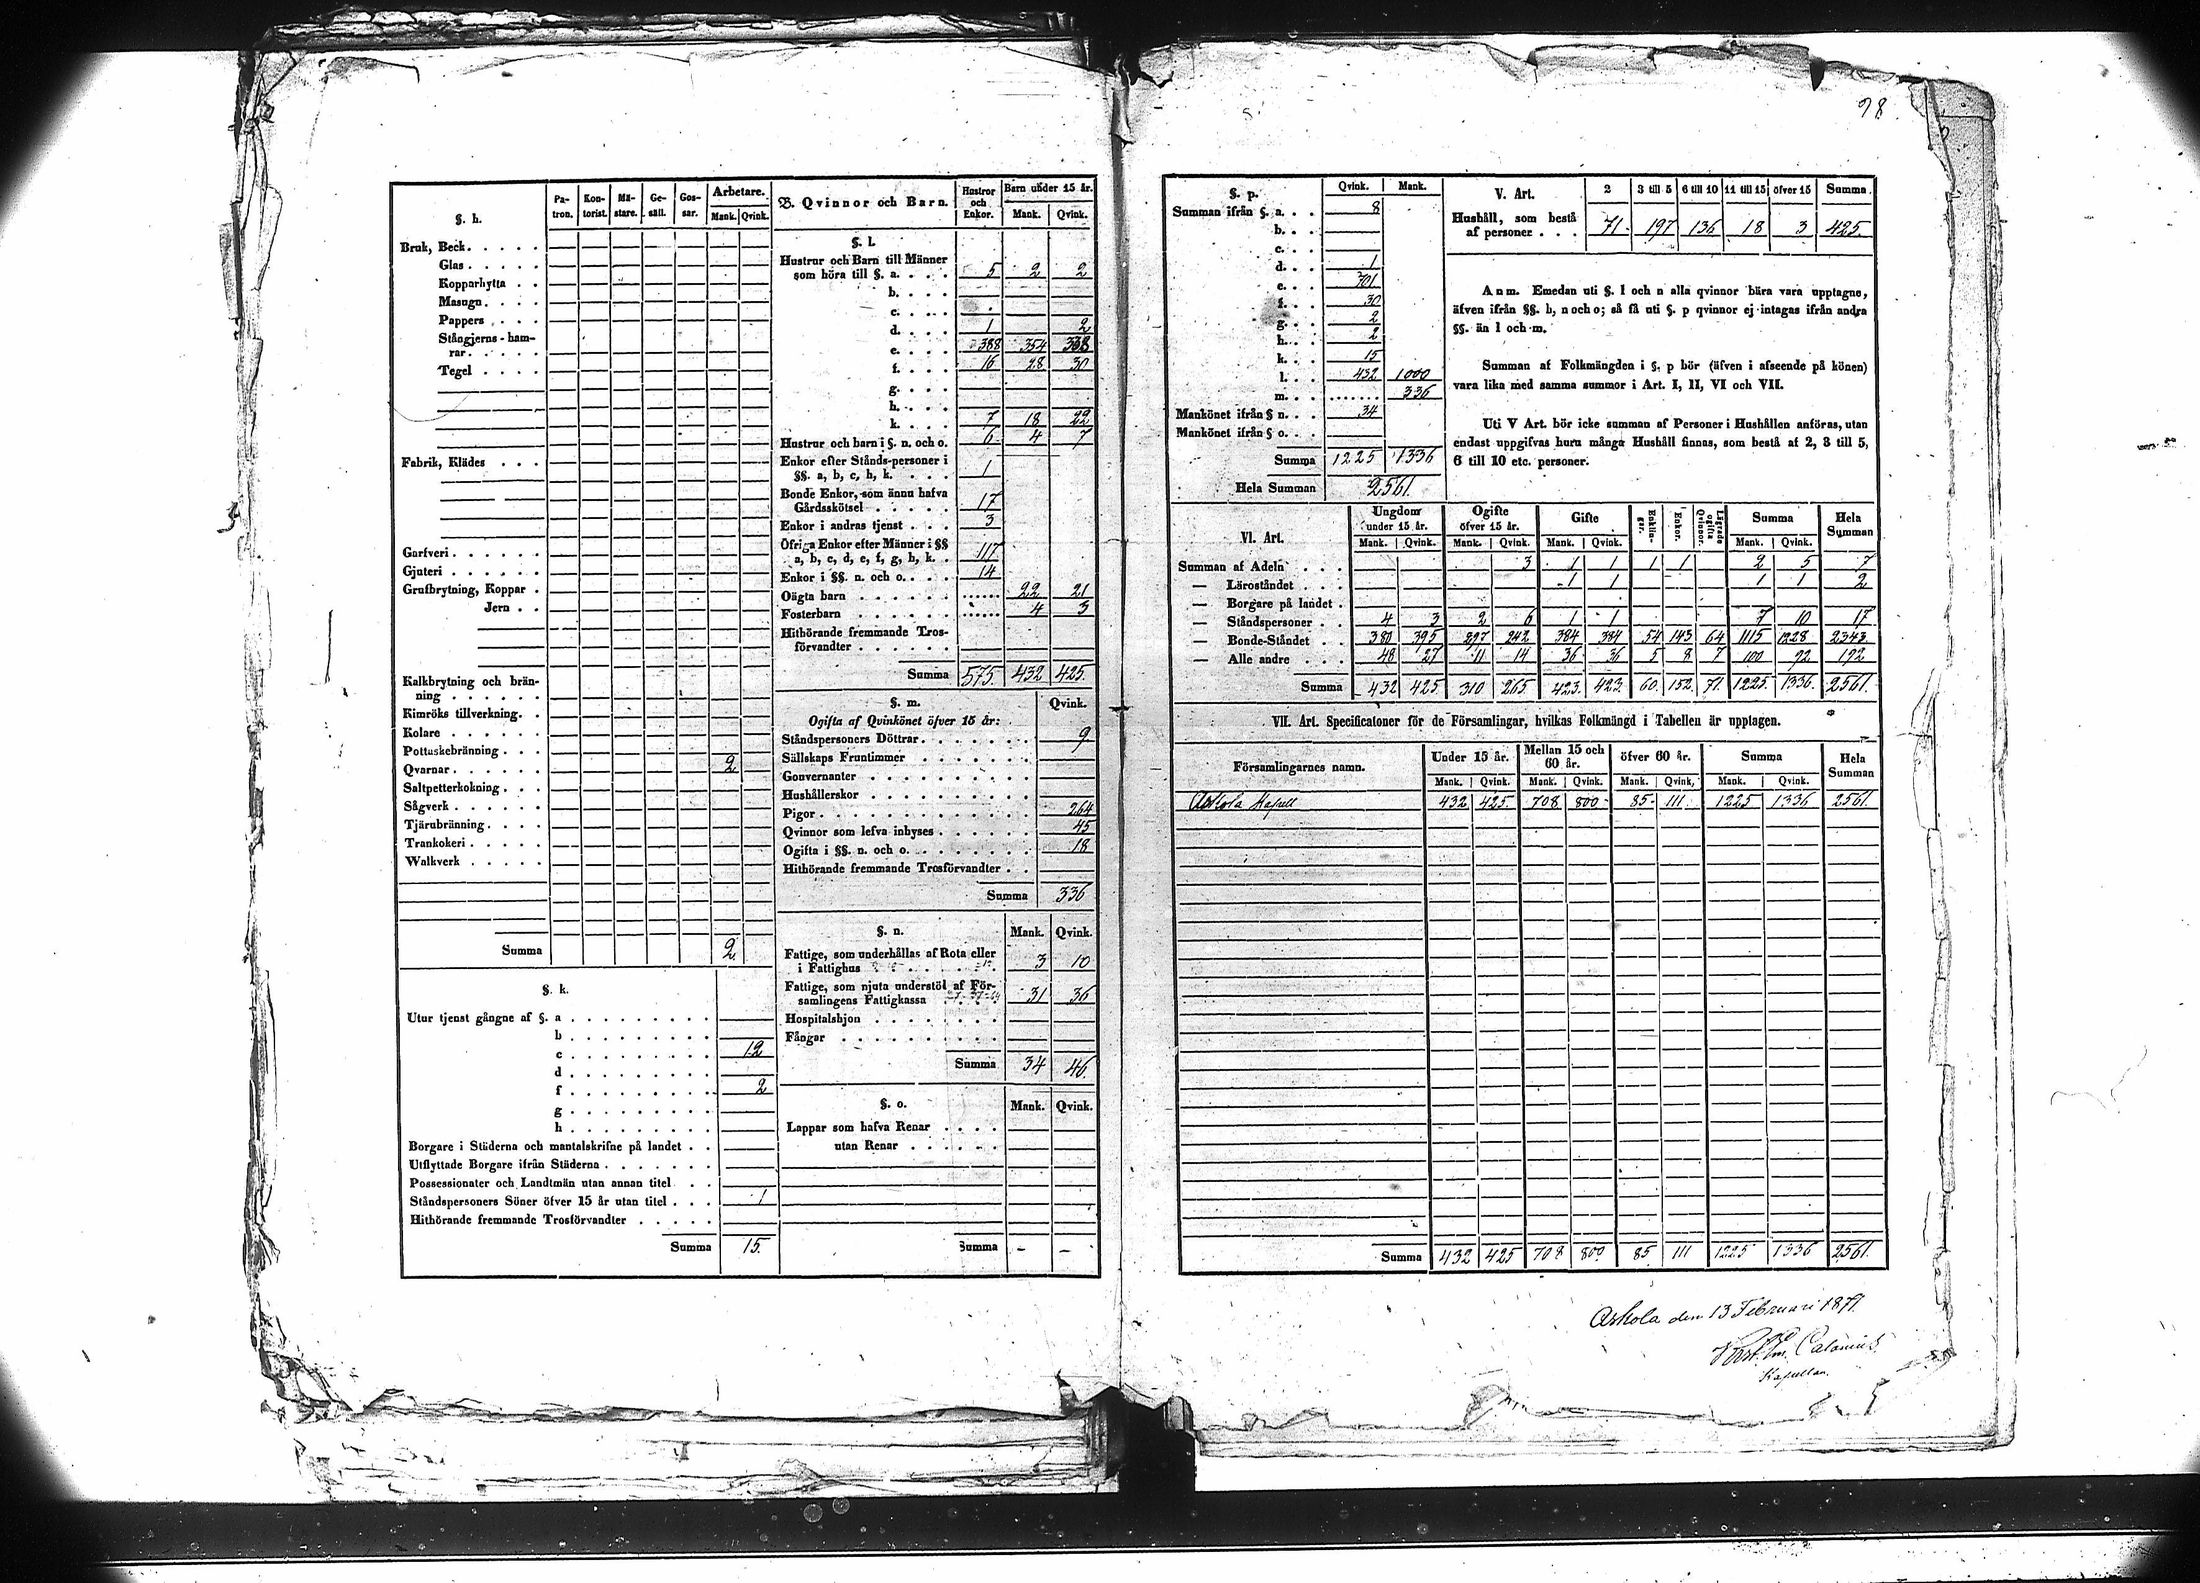 98.
§. h.
Pa- tron. Kon- torist. Mä- stare. Ge- säll. Gos- sar. Arbetare. Mank. Qvink.
Bruk, Beck
Glas
Kopparhytta
Masugn
Pappers
Stångjerns-ham-
rar
Tegel
Fabrik, Klädes
Garfveri
Gjuteri
Grufbrytning, Koppar
Jern
Kalkbrytning och brän-
ning
Kimröks tillverkning
Kolare
Pottaskebränning
Qvarnar 2
Saltpetterkokning
Sågverk
Tjärubränning
Trankokeri
Walkverk
Summa 2
§. k.
Utur tjenst gångne af §. a
b
c 12
d
f 2
g
h
Borgare i Städerna och mantalskrifne på landet
Utflyttade Borgare ifrån Städerna
Possessionater och Landtmän utan annan titel
Ståndspersoners Söner öfver 15 år utan titel 1
Hithörande fremmande Trosförvandter
Summa 15.
B. Qvinnor och Barn. Hustror och Enkor. Barn under 15 år. Mank. Qvink.
§. l.
Hustrur och Barn till Männer
som höra till §. a. 5 2 2
b.
c.
d. 1 2
e. 388 354 338
f. 16 28 30
g.
h.
k. 7 18 22
Hustrur och barn i §. n. och o. 6 4 7
Enkor efter Stånds-personer i
§§. a, b, c, h, k. 1
Bonde Enkor, som ännu hafva
Gårdsskötsel 17
Enkor i andras tjenst 3
Öfriga Enkor efter Männer i §§
a, b, c, d, e, f, g, h, k. 117
Enkor i §§. n. och o. 14
Oägta barn 22 21
Fosterbarn 4 3
Hithörande fremmande Tros-
förvandter
Summa 575. 432 425.
§. m. Qvink.
Ogifta af Qvinkönet öfver 15 år:
Ståndspersoners Döttrar 9
Sällskaps Fruntimmer
Gouvernanter
Hushållerskor
Pigor 264
Qvinnor som lefva inhyses 45
Ogifta i §§. n. och o. 18
Hithörande fremmande Trosförvandter
Summa 336
§. n. Mank. Qvink.
Fattige, som underhållas af Rota eller
i Fattighus 3 10
Fattige, som njuta understöl af För-
samlingens Fattigkassa 31 36
Hospitalshjon
Fångar
Summa 34 46.
§. o. Mank. Qvink.
Lappar som hafva Renar
utan Renar
Summa - -
§. p. Qvink. Mank.
Summan ifrån §. a. 8
b.
c.
d. 1
e. 701
f. 30
g. 2
h. 2
k. 15
l. 432 1000
m. 336
Mankönet ifrån § n. 34
Mankönet ifrån § o.
Summa 1225 1336
Hela Summan 2561.
V. Art. 2 3 till 5 6 till 10 11 till 15 öfver 15 Summa
Hushåll, som bestå
af personer 71. 197 136 18 3 425.
Anm. Emedan uti §. l och n alla qvinnor bära vara upptagne,
äfven ifrån §§. b, n och o; så få uti §. p qvinnor ej intagas ifrån andra
§§. än l och m.
Summan af Folkmängden i §. p bör (äfven i afseende på könen)
vara lika med samma summor i Art. I, II, VI och VII.
Uti V Art. bör icke summan af Personer i Hushållen anföras, utan
endast uppgifvas huru många Hushåll finnas, som bestå af 2, 3 till 5,
6 till 10 etc. personer.
VI. Art. Ungdom under 15 år. Ogifte öfver 15 år. Gifte Enklin- gar. Enkor. Lägrade ogifta Qvinnor. Summa Hela Summan
Mank. Qvink. Mank. Qvink. Mank. Qvink. Mank. Qvink.
Summan af Adeln 3 1 1 1 1 2 5 7
— Läroståndet 1 1 1 1 2
— Borgare på landet
— Ståndspersoner 4 3 2 6 1 1 7 10 17
— Bonde-Ståndet 380 395 297 242 384 384 54 143 64 1115 1228 2343
— Alle andre 48 27 11 14 36 36 5 8 7 100 92 192
Summa 432 425 310 265 423. 423. 60. 152. 71. 1225. 1336. 2561.
VII. Art. Specificatoner för de Församlingar, hvilkas Folkmängd i Tabellen är upptagen.
Församlingarnes namn. Under 15 år. Mellan 15 och 60 år. öfver 60 år. Summa Hela Summan
Mank. Qvink. Mank. Qvink. Mank. Qvink. Mank. Qvink.
Askola Kapell 432 425 708 800 85 111 1225 1336 2561.
Summa 432 425 708 800 85. 111 1225 1336 2561.
Askola den 13 Februari 1871.
Calonius
Kapellan.